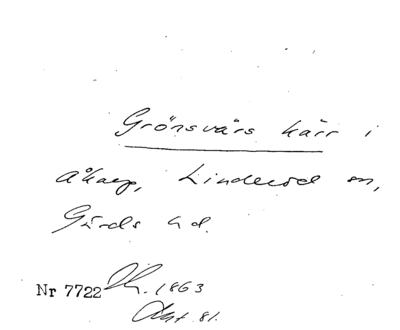 Grönsvärs kärr i
Åkarp, Linderöd sn,
Gärds hd.
Nr 7722 1863
Akt 81.